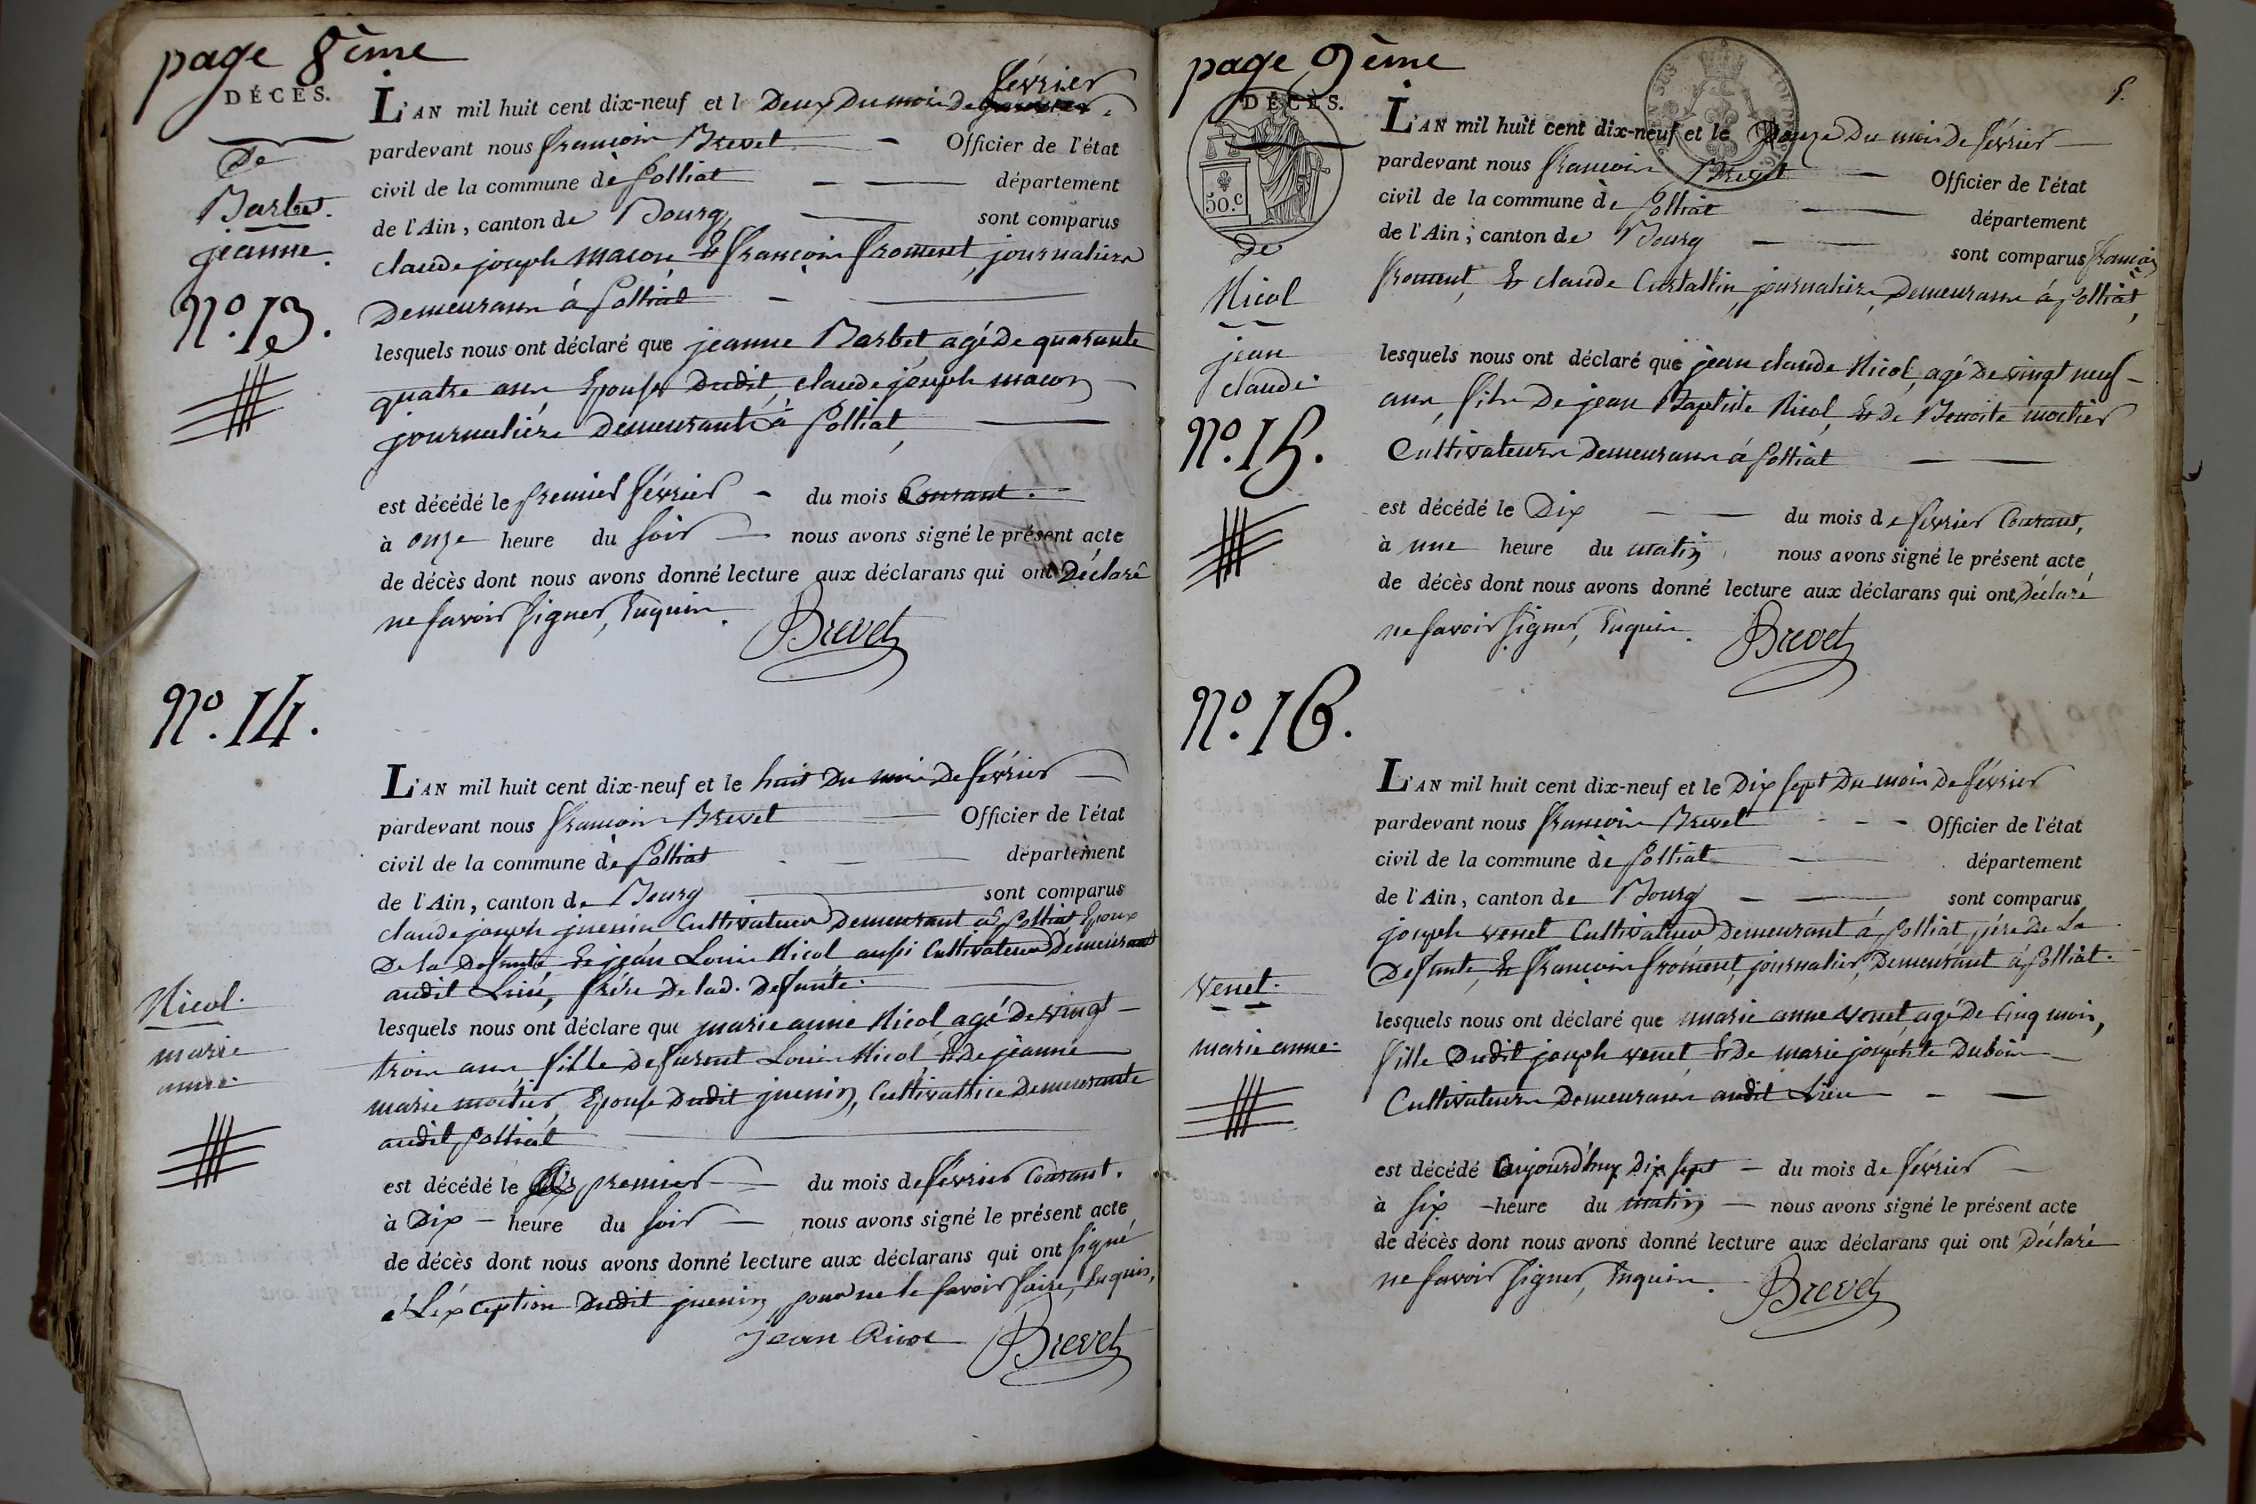 page 8ème
DÉCÈS.
de
Barbet.
jeanne.
N.º 13.
L'AN mil huit cent dix-neuf et l Deux Du mois De février
pardevant nous françois Brevet Officier de l'état
civil de la commune de polliat département
de l'Ain, canton de Bourg sont comparus
claude joseph macon & françois froment, journaliers
Demeurans à polliat
lesquels nous ont déclaré que jeanne Barbet, agé De quarante
quatre ans Epouse Dudit, claude joseph macon
journalière Demeurante à polliat,
est décédé le premier février du mois Courant.
à onze heure du soir nous avons signé le présent acte
de décès dont nous avons donné lecture aux déclarans qui ont Déclaré
ne savoir signer, Enquis.
Brevet
N.º 14.
Nicol.
marie
anne.
L'AN mil huit cent dix-neuf et le huit Du mois De février
pardevant nous françois Brevet Officier de l'état
civil de la commune de polliat département
de l'Ain, canton de Bourg sont comparus
claude joseph juenin Cultivateur Demeurant à polliat, Epoux
De la Defunte & jean Louis Nicol aussi Cultivateur Demeurant
audit Lieu, frère De lad. Defunte.
lesquels nous ont déclaré que marie anne Nicol, agé De vingt
trois ans, fille Defurent Louis Nicol & De jeanne
marie moitier, Epouse Dudit juenin, Cultivatrice Demeurante
audit polliat
est décédé le premier du mois de février Courant.
à Dix heure du soir nous avons signé le présent acte
de décès dont nous avons donné lecture aux déclarans qui ont signé
à L'éxception Dudit juenin pour ne le savoir faire, Enquis,
Jean Nicol Brevet
page 9ème
5.
DÉCÈS.
50.c
de
Nicol
jean
claude.
N.º 15.
L'AN mil huit cent dix-neuf et le Douze Du mois De février
pardevant nous françois Brevet Officier de l'état
civil de la commune de polliat département
de l'Ain, canton de Bourg sont comparus françois
froment, & claude Curtallin, journaliers, Demeurans à polliat,
lesquels nous ont déclaré que jean claude Nicol, agé De vingt neuf
ans, fils De jean Baptiste Nicol, & De Benoite moitier
Cultivateurs Demeurans à polliat
est décédé le Dix du mois de février Courant,
à une heure du matin, nous avons signé le présent acte
de décès dont nous avons donné lecture aux déclarans qui ont Déclaré
ne savoir signer, Enquis.
Brevet
N.º 16.
venet.
marie anne.
L'AN mil huit cent dix-neuf et le Dix sept Du mois De février
pardevant nous françois Brevet Officier de l'état
civil de la commune de polliat département
de l'Ain, canton de Bourg sont comparus
joseph venet Cultivateur Demeurant à polliat, père De La
Defunte, & françois froment, journalier, Demeurant à polliat.
lesquels nous ont déclaré que marie anne venet, agé de Cinq mois,
fille Dudit joseph venet & De marie josephte Dubois
Cultivateurs Demeurans audit Lieu
est décédé aujourd'huy Dix sept du mois de février
à six heure du matin nous avons signé le présent acte
de décès dont nous avons donné lecture aux déclarans qui ont Déclaré
ne savoir signer, Enquis.
Brevet